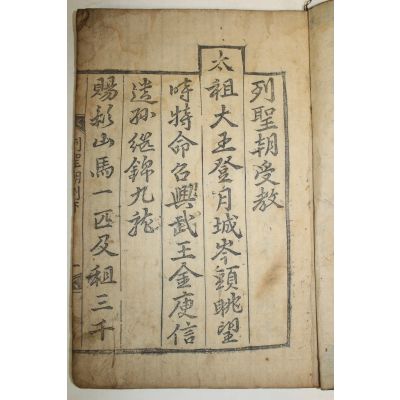 列聖朝受教
太祖大王登月城岑頭眺望
時特命召興武王金庾信
遺孫繼錦九龍
賜影山馬一匹及租三千
列聖朝